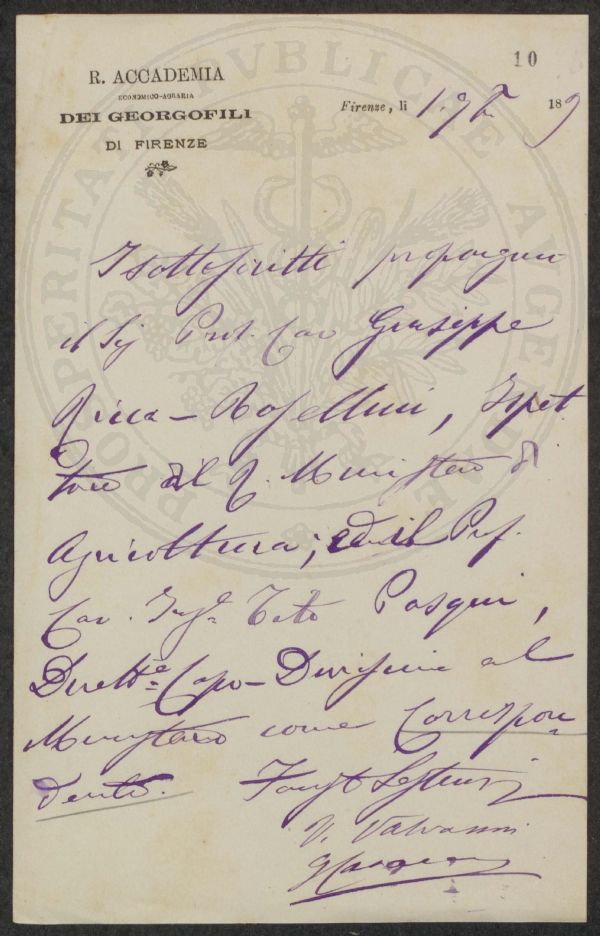 10
R. ACCADEMIA
ECONOMICO-AGRARIA
DEI GEORGOFILI
DI FIRENZE
Firenze, li 1. 9bre 189
PROSPERITATI PVBLICAE AVGENDAE
I sottoscritti propongono
il Sig Prof. Cav Giuseppe
Ricca-Rosellini, Ispet
tore al R. Ministero di
Agricoltura; ed il Prof.
Cav. Ing.e Tito Pasqui,
Dirett.e Capo-Divisione al
Ministero come Correspon
dente.
V. Valvassori